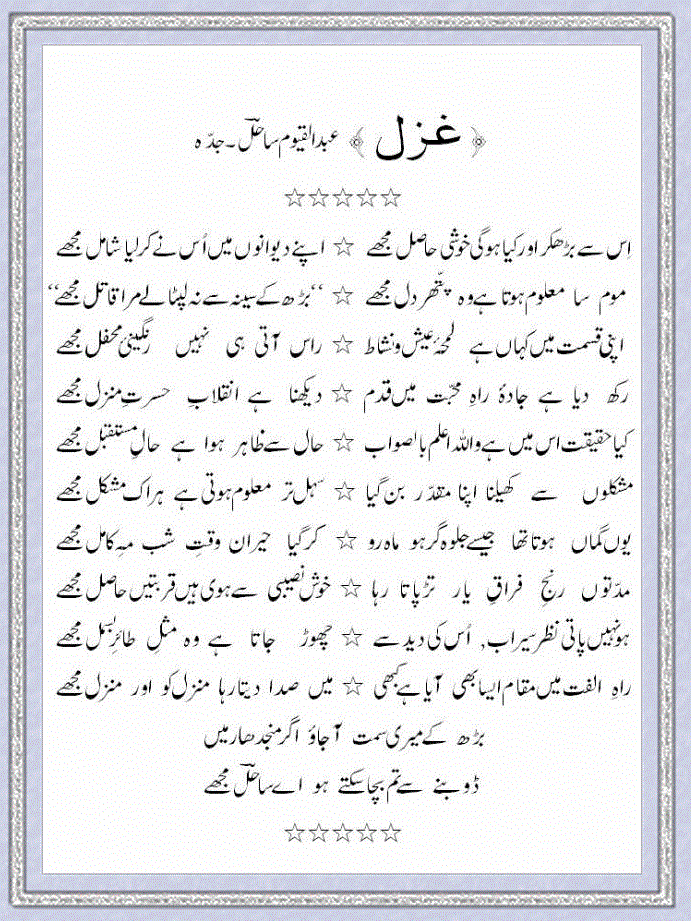 ﴿ غزل ﴾ عبدالقیوم ساحلؔ۔جدّہ
☆☆☆☆☆
اِس سے بڑھکر اور کیا ہوگی خوشی حاصل مجھے ☆ اپنے دیوانوں میں اُس نے کرلیا شامل مجھے
موم سا معلوم ہوتا ہے وہ پتھّر دل مجھے ☆ ‘‘بڑھ کے سینہ سے نہ لپٹالے مرا قاتل مجھے‘‘
اپنی قسمت میں کہاں ہے لمحۂ عیش ونشاط ☆ راس آتی ہی نہیں رنگینیٔ محفل مجھے
رکھ دیا ہے جادۂ راہِ محبّت میں قدم ☆ دیکھنا ہے انقلابِ حسرتِ منزل مجھے
کیا حقیقت اس میں ہے واللہ اعلم بالصواب ☆ حال سے ظاہر ہوا ہے حالِ مستقبل مجھے
مشکلوں سے کھیلنا اپنا مقدّر بن گیا ☆ سہل تر معلوم ہوتی ہے ہراک مشکل مجھے
یوں گماں ہوتا تھا جیسے جلوہ گر ہو ماہ رو ☆ کرگیا حیران وقتِ شب مہِ کامل مجھے
مدّتوں رنجِ فراقِ یار تڑپاتا رہا ☆ خوش نصیبی سے ہوی ہیں قربتیں حاصل مجھے
ہو نہیں پاتی نظر سیراب, اُس کی دید سے ☆ چھوڑ جاتا ہے وہ مثلِ طائرِ بسمل مجھے
راہِ الفت میں مقام ایسا بھی آیا ہے کبھی ☆ میں صدا دیتا رہا منزل کو اور منزل مجھے
بڑھ کے میری سمت آجاؤ اگر منجدھار میں
ڈوبنے سے تم بچا سکتے ہو اے ساحلؔ مجھے
☆☆☆☆☆